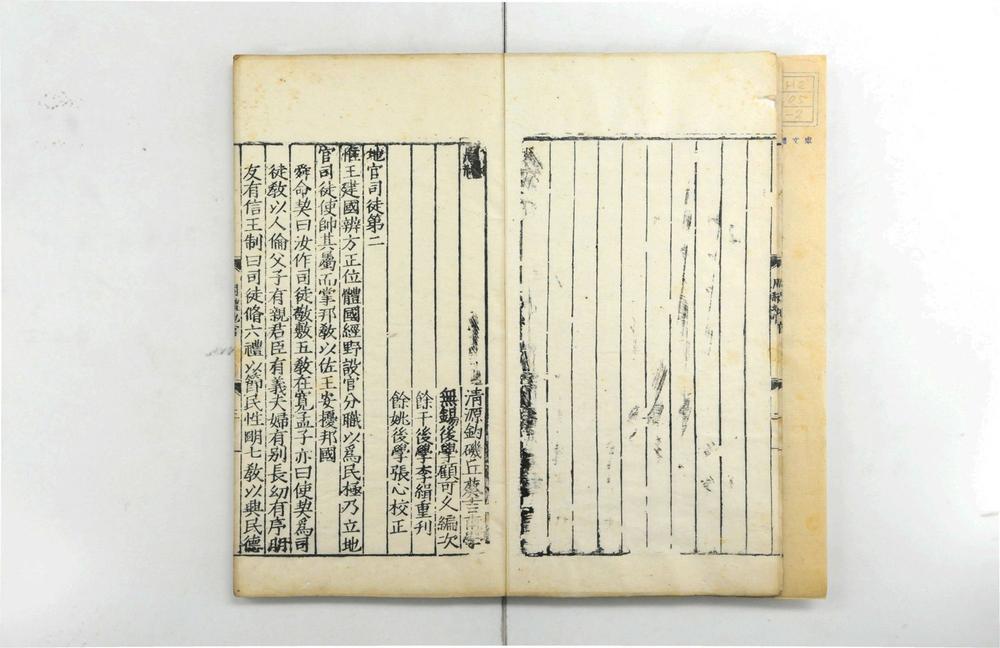 H2
05
-2
清源釣磯丘葵吉甫學
無錫後學顧可久編次
餘干後學李緝重刊
餘姚後學張心校正
地官司徒第二
惟王建國辨方正位體國經野設官分職以爲民極乃立地
官司徒使帥其屬而掌邦敎以佐王安擾邦國
舜命契曰汝作司徒敬敷五敎在寬孟子亦曰使契爲司
徒敎以人倫父子有親君臣有義夫婦有別長幼有序朋
友有信王制曰司徒脩六禮以節民性明七敎以興民德